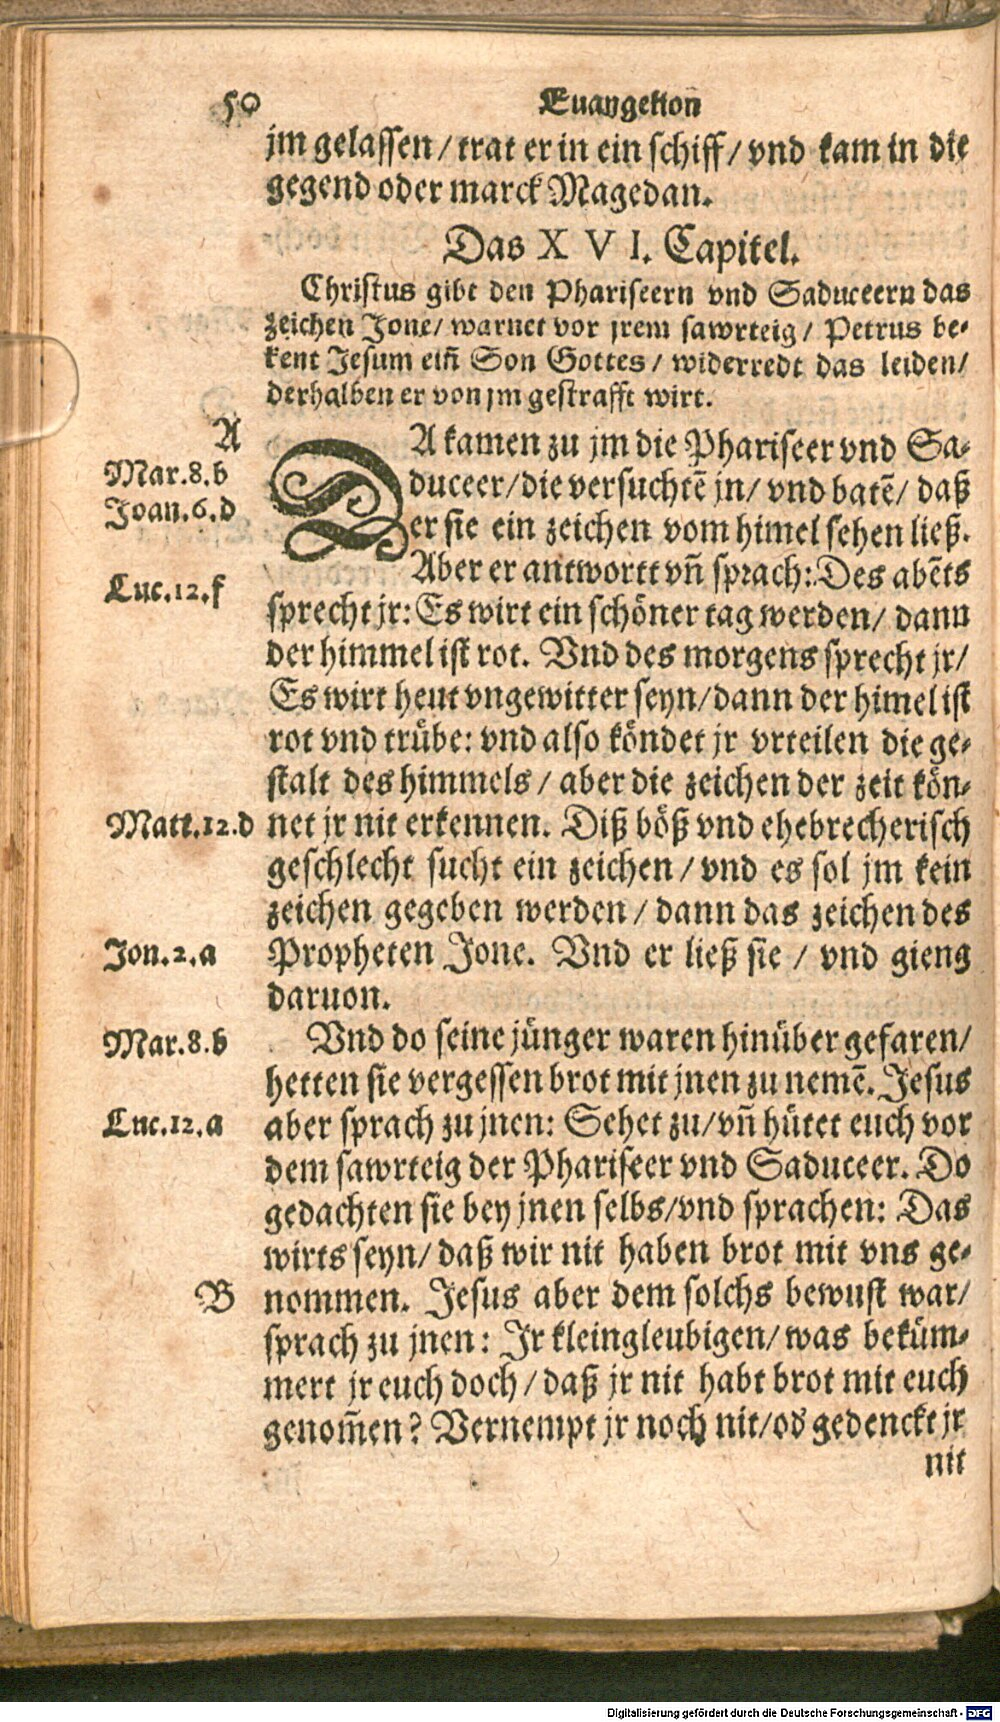 50 Euangelion
jm gelassen / trat er in ein schiff / vnd kam in die
gegend oder marck Magedan.
Das XVI. Capitel.
Christus gibt den Phariseern vnd Saduceern das
zeichen Jone / warnet vor jrem sawrteig / Petrus be-
kent Jesum eiñ Son Gottes / widerredt das leiden /
derhalben er von jm gestrafft wirt.
A
Mar.8.b
Joan.6.d
DA kamen zu jm die Phariseer vnd Sa-
duceer / die versuchtẽ jn / vnd batẽ / daß
er sie ein zeichen vom himel sehen ließ.
Aber er antwortt vñ sprach: Des abẽts
Luc.12.f
sprecht jr: Es wirt ein schöner tag werden / dann
der himmel ist rot. Vnd des morgens sprecht jr /
Es wirt heut vngewitter seyn / dann der himel ist
rot vnd trübe: vnd also köndet jr vrteilen die ge-
stalt des himmels / aber die zeichen der zeit kön-
Matt.12.d
net jr nit erkennen. Diß böß vnd ehebrecherisch
geschlecht sucht ein zeichen / vnd es sol jm kein
zeichen gegeben werden / dann das zeichen des
Jon.2.a
Propheten Jone. Vnd er ließ sie / vnd gieng
daruon.
Mar.8.b
Vnd do seine jünger waren hinüber gefaren /
hetten sie vergessen brot mit jnen zu nemẽ. Jesus
Luc.12.a
aber sprach zu jnen: Sehet zu / vñ hütet euch vor
dem sawrteig der Phariseer vnd Saduceer. Do
gedachten sie bey jnen selbs / vnd sprachen: Das
wirts seyn / daß wir nit haben brot mit vns ge-
B
nommen. Jesus aber dem solchs bewust war /
sprach zu jnen: Jr kleingleubigen / was beküm-
mert jr euch doch / daß jr nit habt brot mit euch
genom̃en? Vernempt jr noch nit / od gedenckt jr
nit
Digitalisierung gefördert durch die Deutsche Forschungsgemeinschaft - DFG